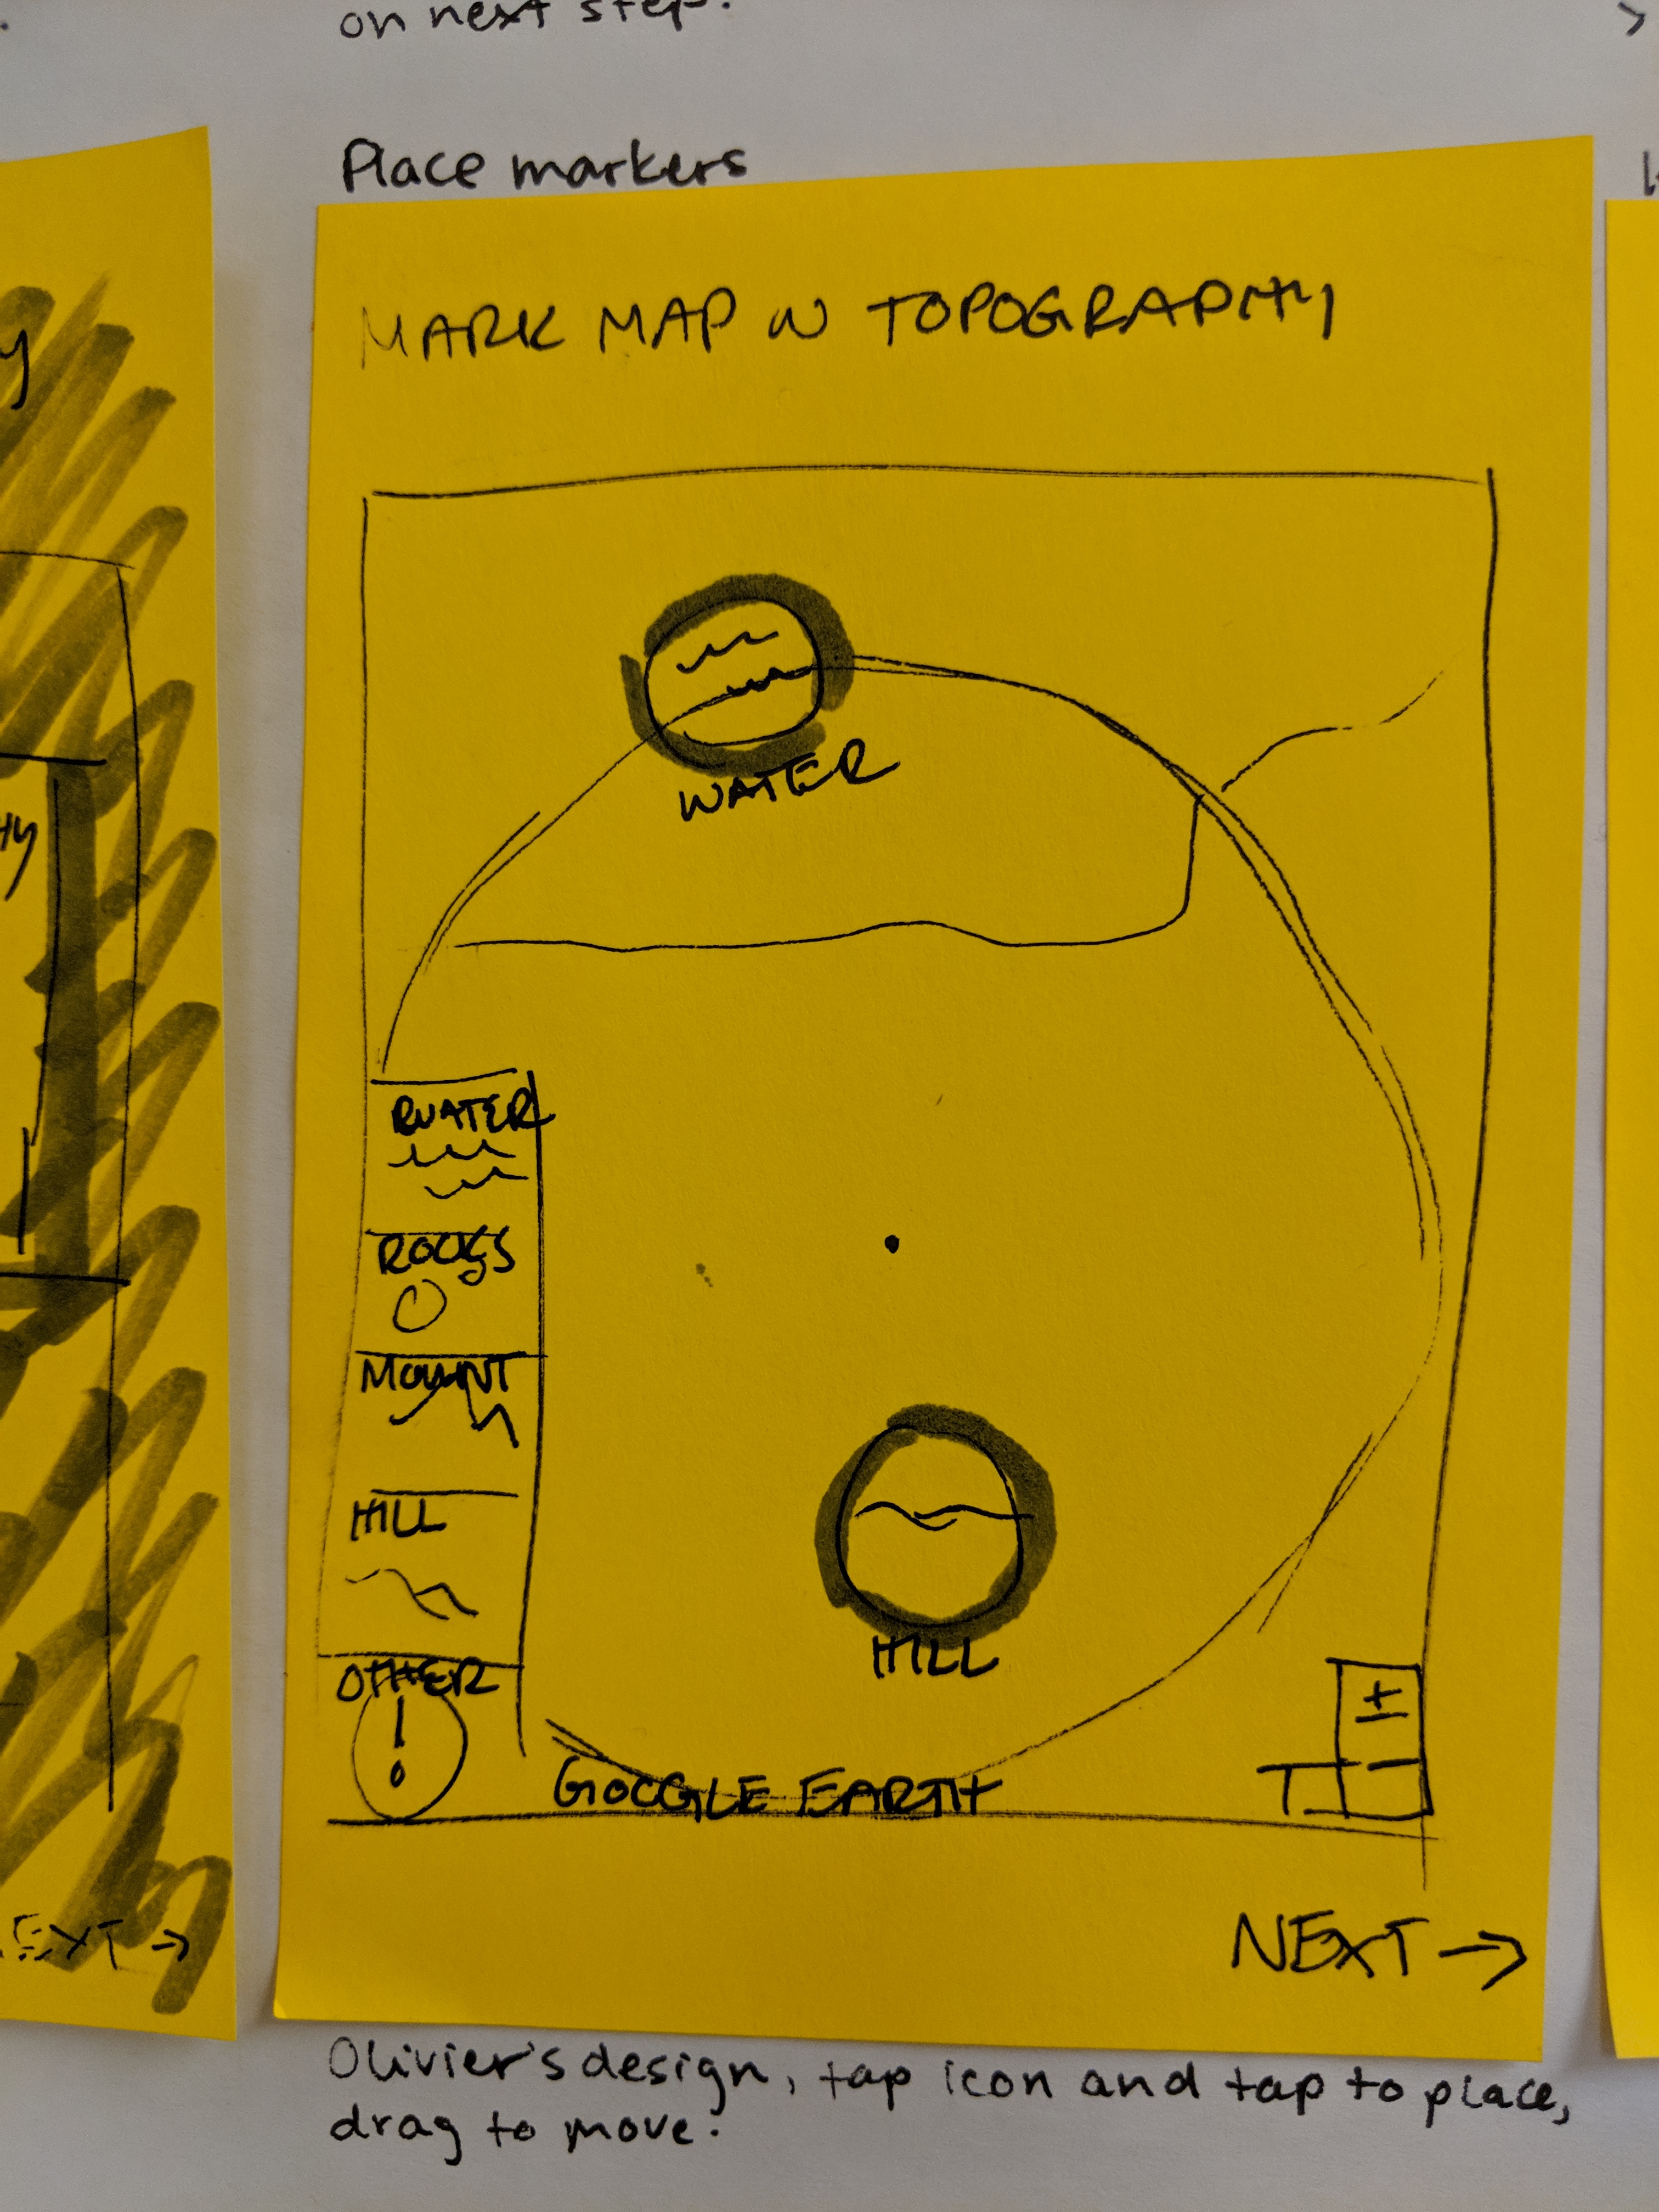 on next step.
Place markers
MARK MAP W TOPOGRAPHY
WATER
RWATER
ROCKS
MOUNT
HILL
HILL
OTHER
!
GOOGLE EARTH
+
-
NEXT →
EXT →
Olivier's design, tap icon and tap to place,
drag to move.